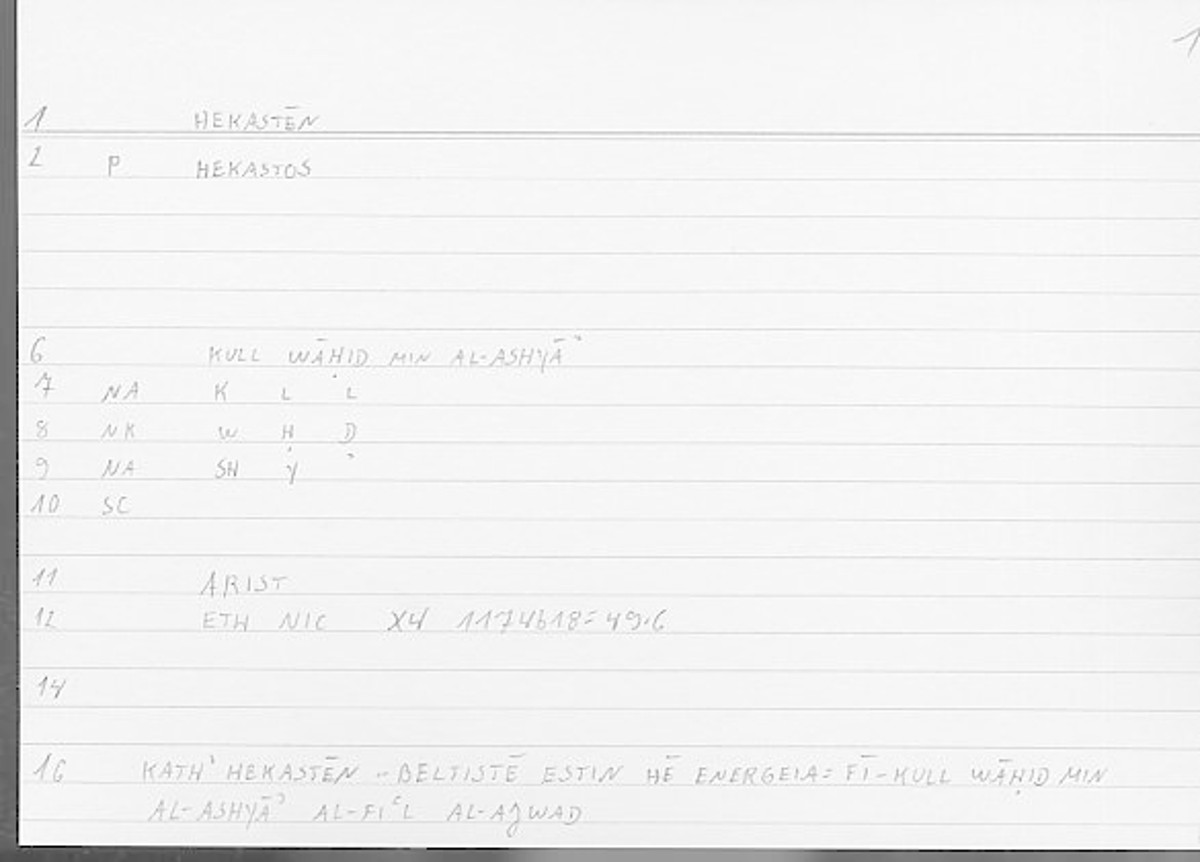 1
1 HEKASTĒN
2 P HEKASTOS
6 KULL WĀHID MIN AL-ASHYĀʾ
7 NA K L L
8 NK W Ḥ D
9 NA SH Y ʾ
10 SC
11 ARIST
12 ETH NIC X4 1174b18=49.6
14
16 KATH' HEKASTĒN - BELTISTĒ ESTIN HĒ ENERGEIA= FĪ-KULL WĀḤID MIN
AL-ASHYĀʾ AL-FIʿL AL-AJWAD